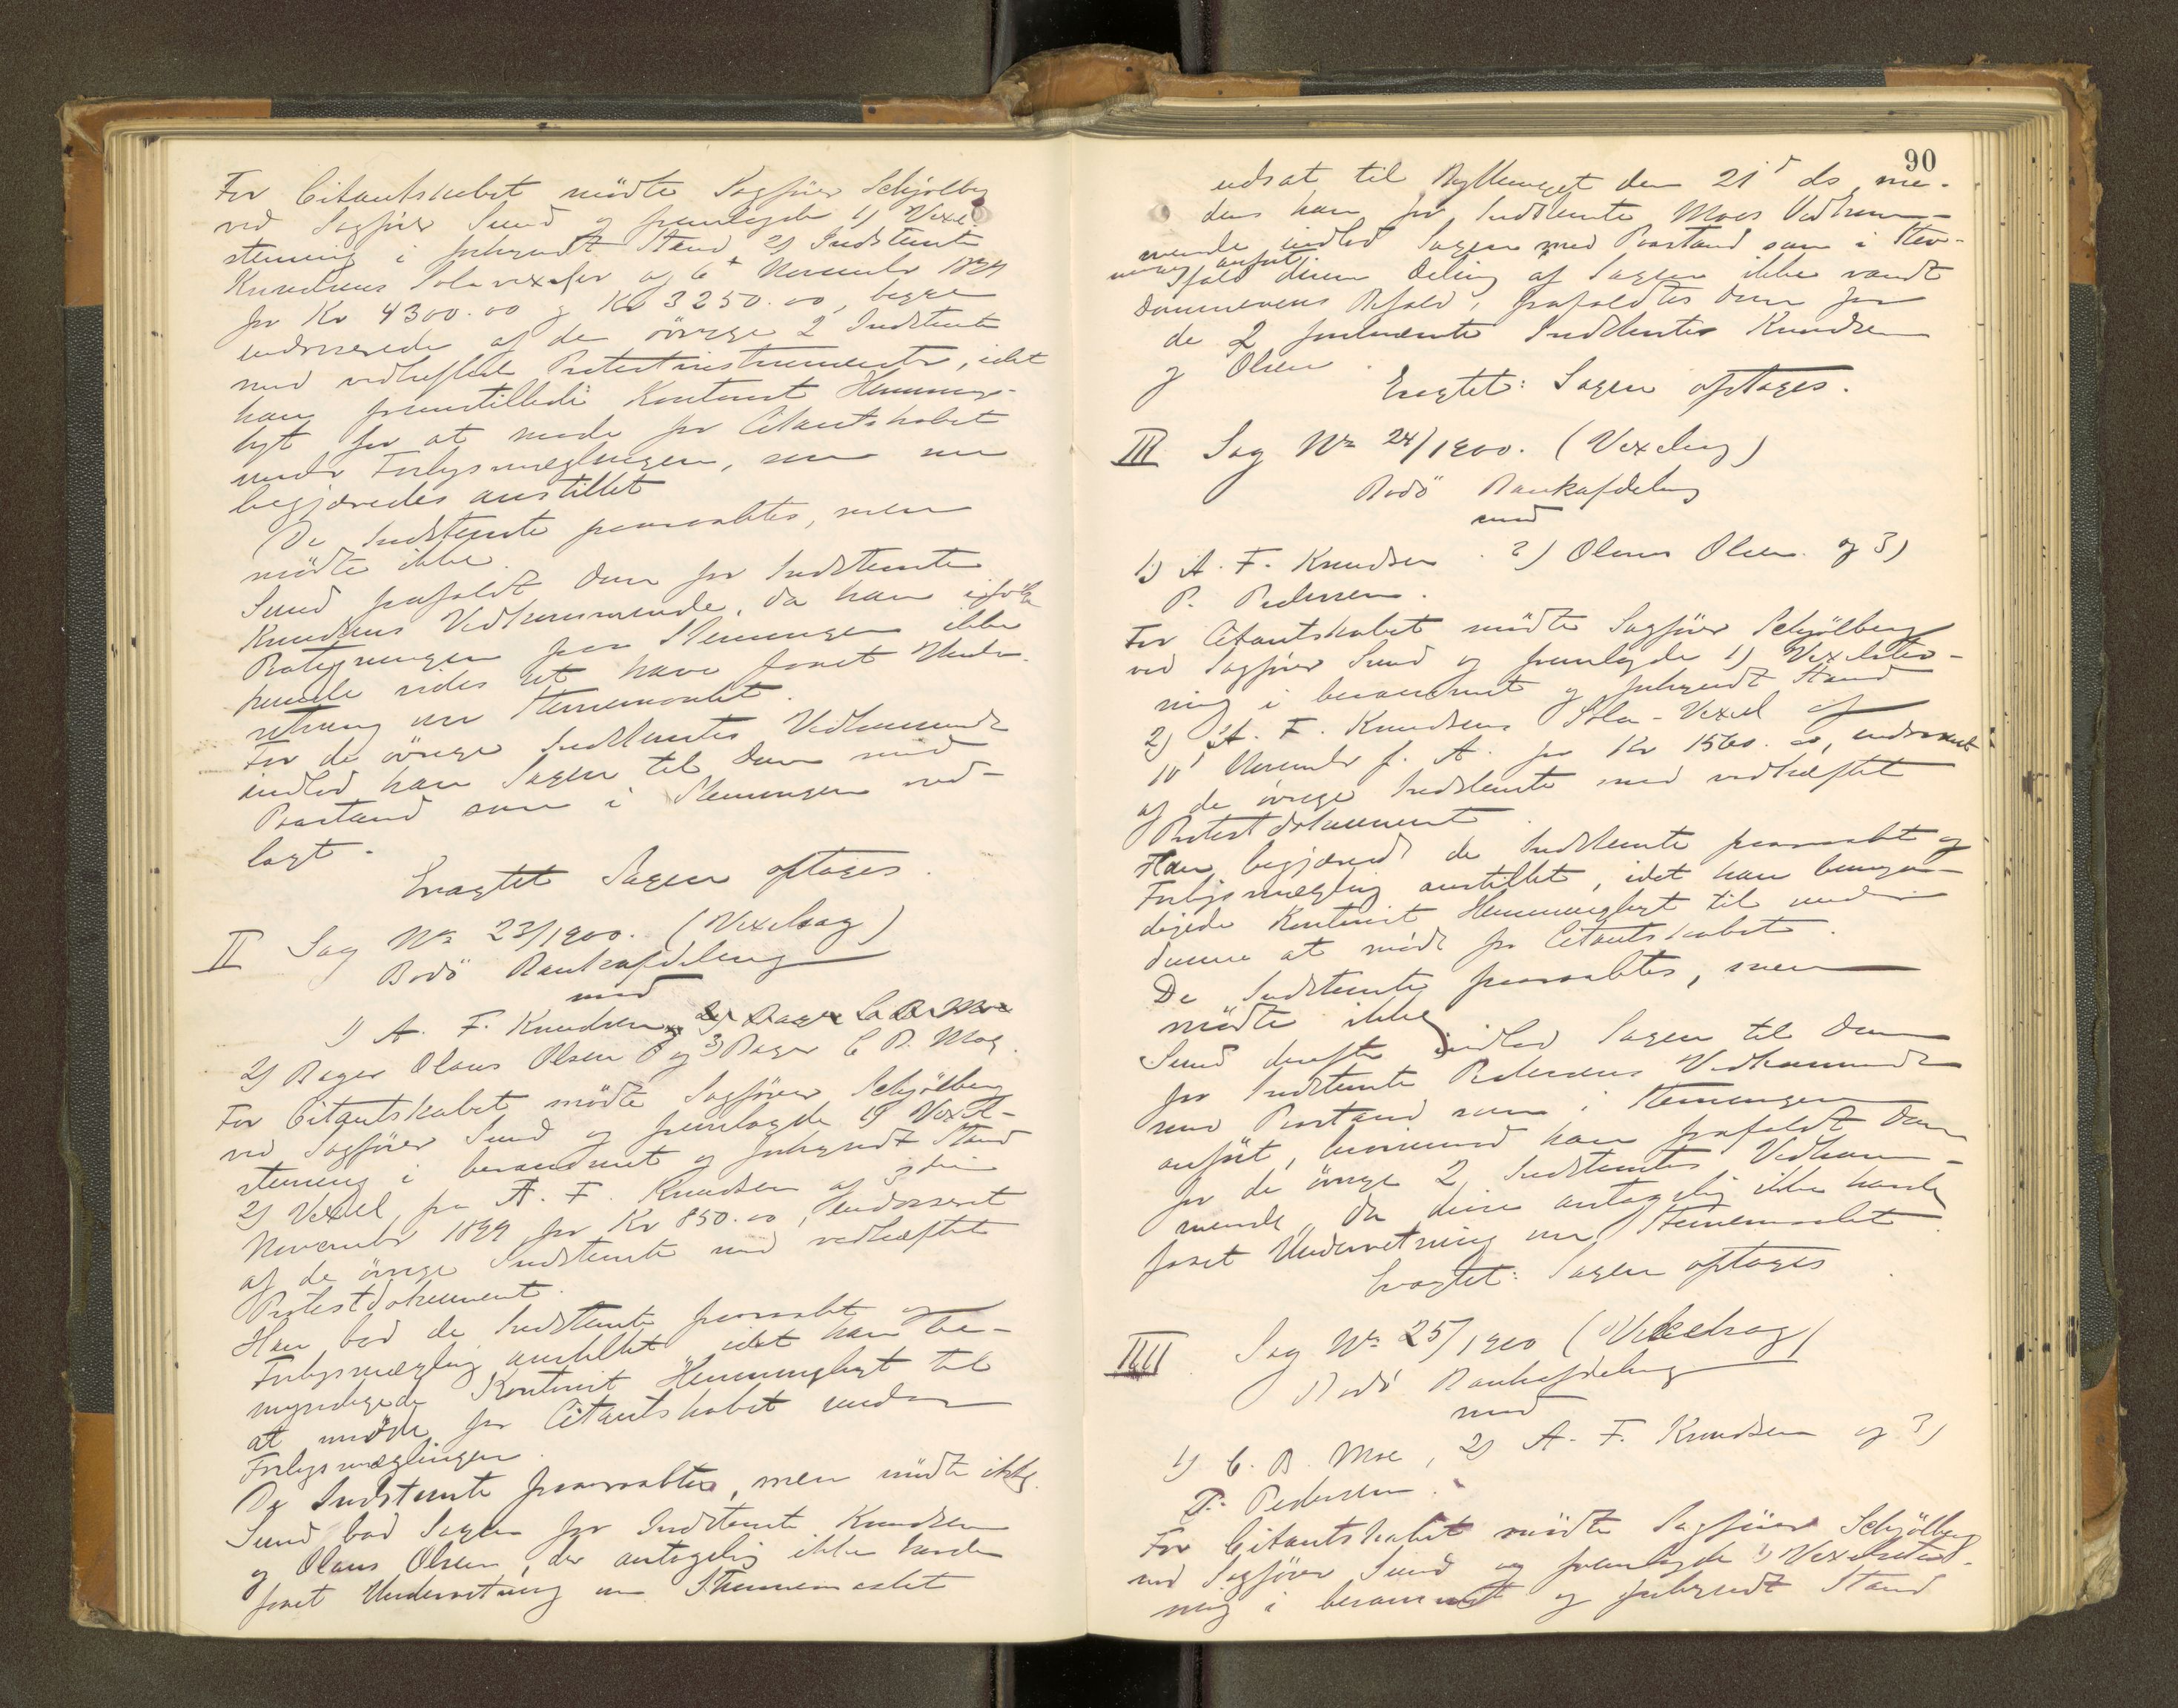 For Citantskabet mødte Sagfører Schjølberg
ved Sagfører Sund og fremlagde 1) Vexel
stevning i forkyndt Stand 2) Indstevnte
Knudsens Solavexeler af 6t November 1899
for Kr 4300.00 og Kr 3250.00, begge
endosserede af de øvrige 2 Indstevnte
med vedheftede Protestinstrumenter, idet
han fremstillede Kontorist Hemming-
hyt for at møde for Citantskabet
under Forligsmæglingen, som nu
begjæredes anstillet
De Indstevnte paaraabtes, men
mødte ikke.
Sund frafaldt Dom for Indstevnte
Knudsens Vedkommende, da han ifølge
Paategningen paa Stevningen ikke
kunde vides at have faaet Under-
retning om Stevnemaalet.
For de øvrige Indstevntes Vedkommende
indlod han Sagen til Dom med
Paastand som i Stevningen ned-
lagt.
Eragtet Sagen optages.
II Sag No 23/1900. (Vexelsag)
Bodø Bankafdeling
mod
1) A. F. Knudsen
2) Bager Olaus Olsen og 3) Bager C B. Moe.
For Citantskabet mødte Sagfører Schjølberg
ved Sagfører Sund og fremlagde 1) Vexel-
stevning i berammet og forkyndt Stand
2) Vexel fra A. F. Knudsen af 3die
November 1899 for Kr 850.00, endosseret
af de øvrige Indstevnte med vedhæftet
Protestdokument.
Han bad de Indstevnte paaraabt og
Forligsmægling anstillet idet han be-
myndigede Kontorist Hemminghyt til
at møde for Citantskabet under
Forligsmæglingen.
De Indstevnte paaraabtes, men mødte ikke.
Sund bad Sagen for Indstevnte Knudsen
og Olaus Olsen, der antagelig ikke havde
faaet Underretning om Stevnemaalet
90
udsat til Bythinget den 21d ds, me-
dens han for Indstevnte Moes Vedkom-
mende indlod Sagen med Paastand som i Stev-
ningen anført.
Ifald denne Deling af Sagen ikke vandt
Dommerens Bifald, frafaldtes Dom for
de 2 førstnævnte Indstevntes Knudsen
og Olsen.
Eragtet: Sagen optages.
III Sag No 24/1900. (Vexelsag)
Bodø Bankafdeling
mod
1) A. F. Knudsen 2) Olaus Olsen og 3)
P. Pedersen.
For Citantskabet mødte Sagfører Schjølberg
ved Sagfører Sund og fremlagde 1) Vexelstev-
ning i berammet og forkyndt Stand
2) A. F. Knudsens Sola-Vexel af
10 November f. A. for Kr 1560.00, endosseret
af de øvrige Indstevnte med vedhæftet
Protestdokument.
Han begjærede de Indstevnte paaraabt og
Forligsmægling anstillet, idet han bemyn-
digede Kontorist Hemminghyt til under
denne at møde for Citantskabet.
De Indstevnte paaraabtes, men
mødte ikke
Sund derefter indlod Sagen til Dom
for Indstevnte Pedersens Vedkommende
med Paastand som i Stevningen
anført, hvorimod han frafaldt Dom
for de øvrige 2 Indstevntes Vedkom-
mende, da disse antagelig ikke havde
faaet Underretning om Stevnemaalet.
Eragtet: Sagen optages
IIII Sag No 25/1900 (Vexelsag)
Bodø Bankafdeling
mod
1) C. B. Moe, 2) A. F. Knudsen og 3)
P. Pedersen.
For Citantskabet mødte Sagfører Schjølberg
ved Sagfører Sund og fremlagde 1) Vexelstev-
ning i berammet og forkyndt Stand